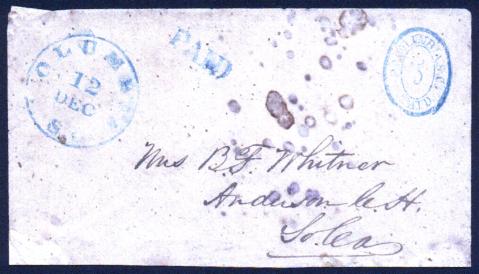 COLUMBIA
12
DEC
S.C.
PAID
COLUMBIA S.C.
3
PAID
Mrs B. F. Whitner
Anderson C. H.
So. Ca